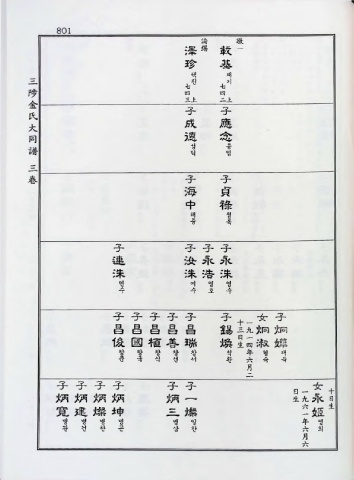 801
三陟金氏大同譜 三卷
澈一
載基 재기
七四二上
洛錫
澤珍 택진
七四三上
子應念 응념
子成德 성덕
子貞祿 정록
子海中 해중
子永洙 영수
子永浩 영호
子汝洙 여수
子連洙 연수
女炯淑 형숙
子錫煥 석환
一九一四年六月二
十三日生
子昌瑞 창서
子昌善 창선
子昌植 창식
子昌國 창국
子昌俊 창준
十日生
女永姬 영희
一九六一年六月六
日生
子一燦 일찬
子炳三 병삼
子炳坤 병곤
子炳燦 병찬
子炳建 병건
子炳寬 병관